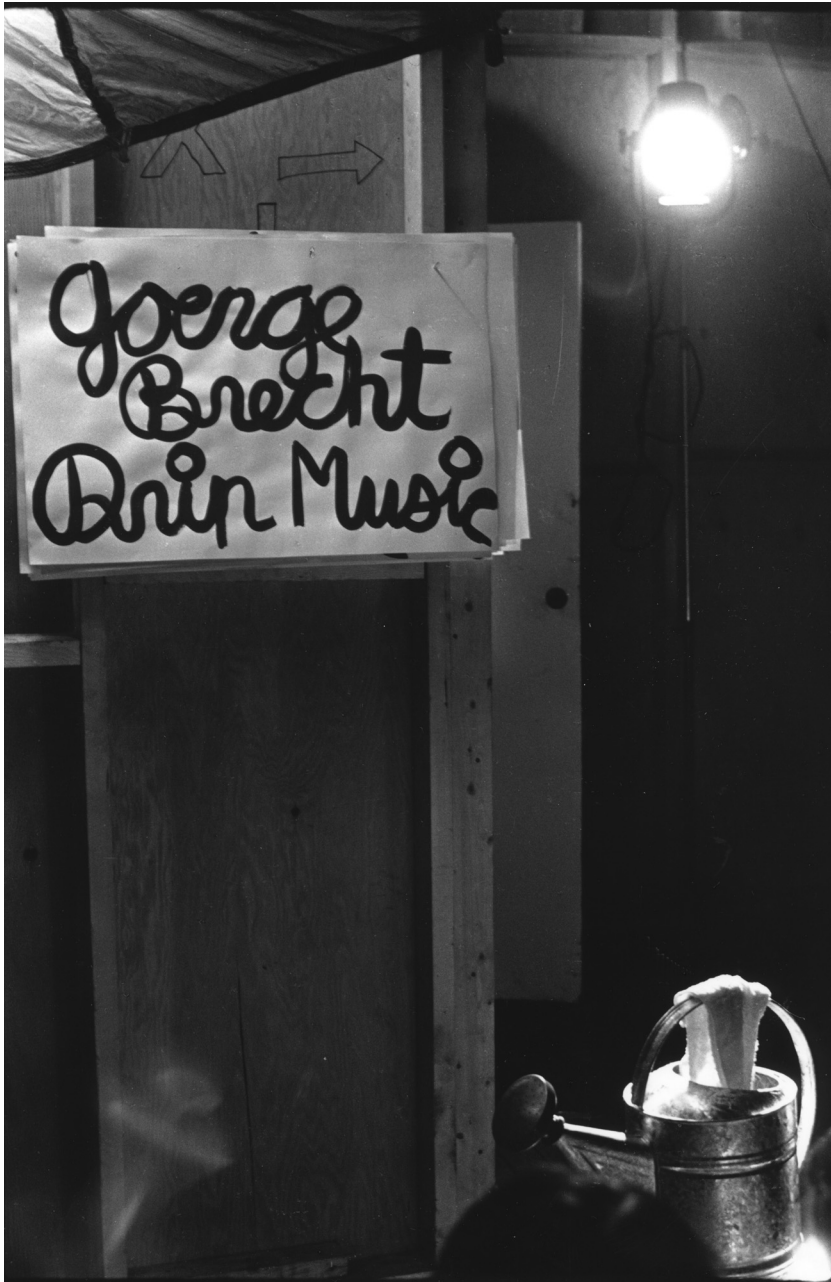 Goerge
Brecht
Drip Music